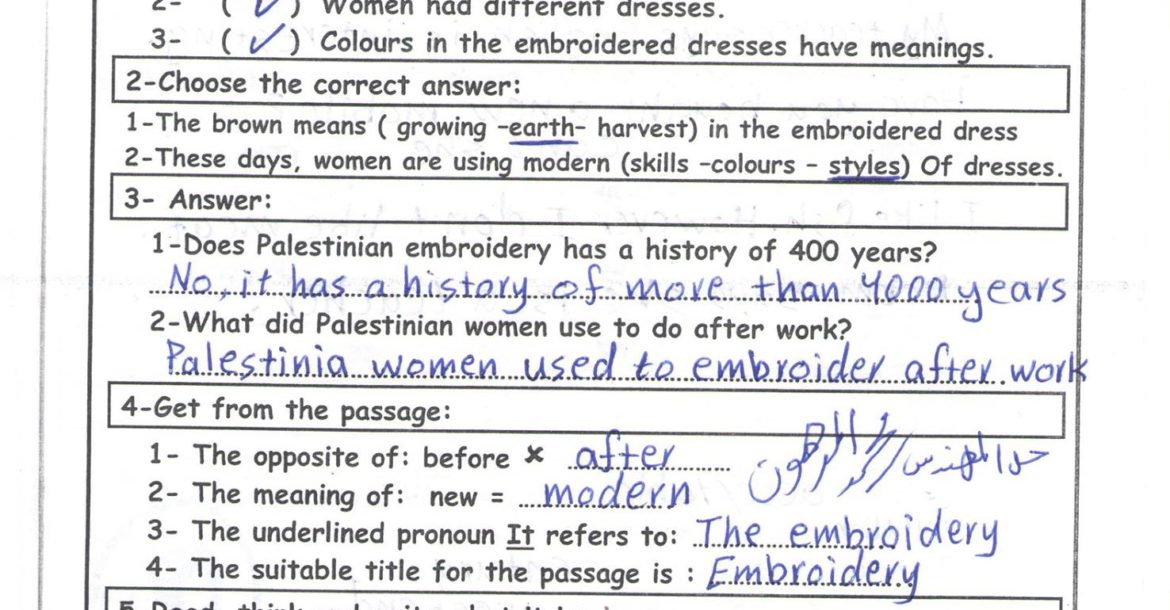 2- ( ✓ ) Women had different dresses.
3- ( ✓ ) Colours in the embroidered dresses have meanings.
2-Choose the correct answer:
1-The brown means ( growing -earth- harvest) in the embroidered dress
2-These days, women are using modern (skills -colours - styles) Of dresses.
3- Answer:
1-Does Palestinian embroidery has a history of 400 years?
No, it has a history of more than 4000 years
2-What did Palestinian women use to do after work?
Palestinia women used to embroider after work
4-Get from the passage:
1- The opposite of: before × after
2- The meaning of: new = modern
3- The underlined pronoun It refers to: The embroidery
4- The suitable title for the passage is : Embroidery